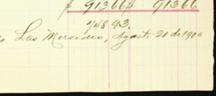 $ 91366 91366
948 93.
Las Mercedes, Agost. 21 de 1910